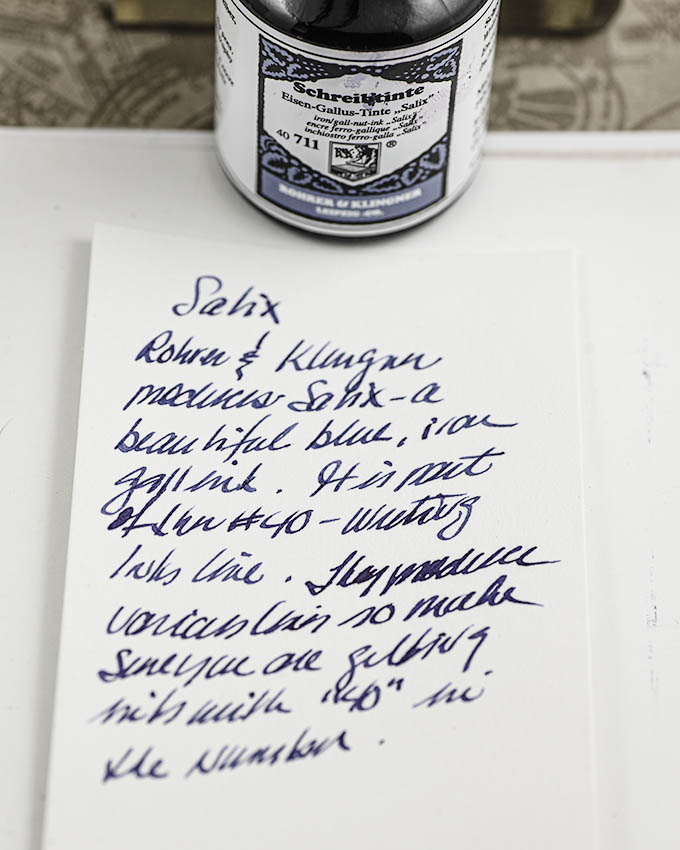 Schreibtinte
Eisen-Gallus-Tinte „Salix”
iron/gall-nut-ink „Salix”
encre ferro-gallique „Salix”
inchiostro ferro-galla „Salix”
40 711
R&K ®
ROHRER & KLINGNER
LEIPZIG-CO.
Salix
Rohrer & Klingner
produces Salix - a
beautiful blue, iron
gall ink. It is part
of their #40 - Writing
Inks line. They produce
various lines so make
sure you are getting
inks with "40" in
the number.